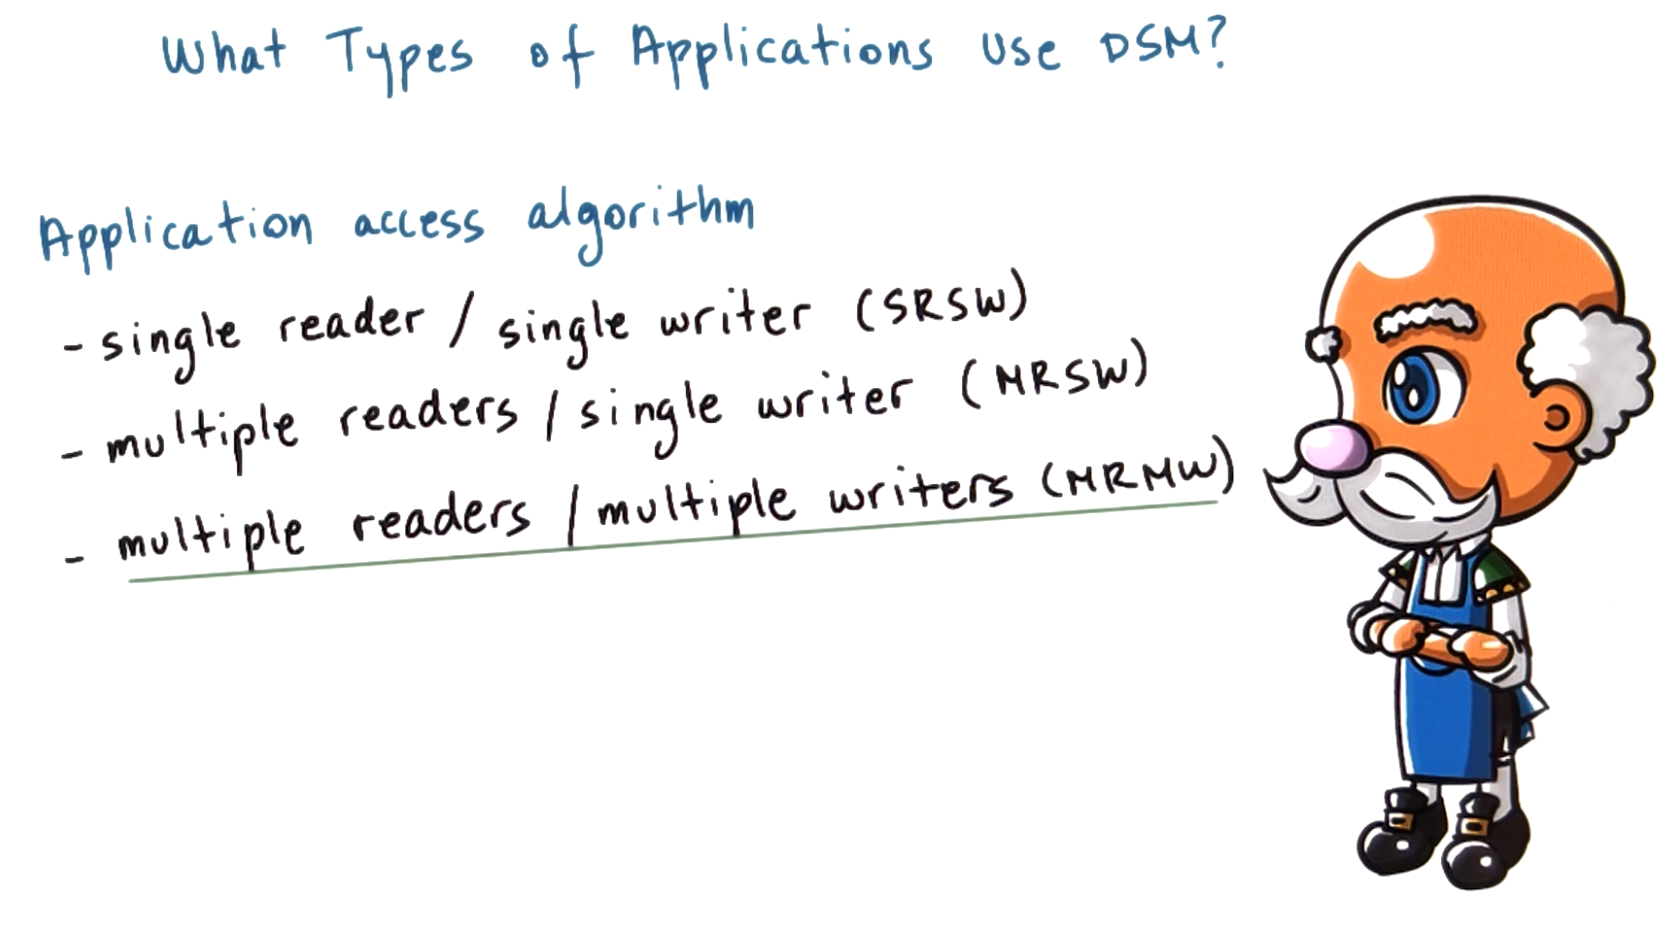 What Types of Applications Use DSM?
Application access algorithm
- single reader / single writer (SRSW)
- multiple readers / single writer (MRSW)
- multiple readers / multiple writers (MRMW)